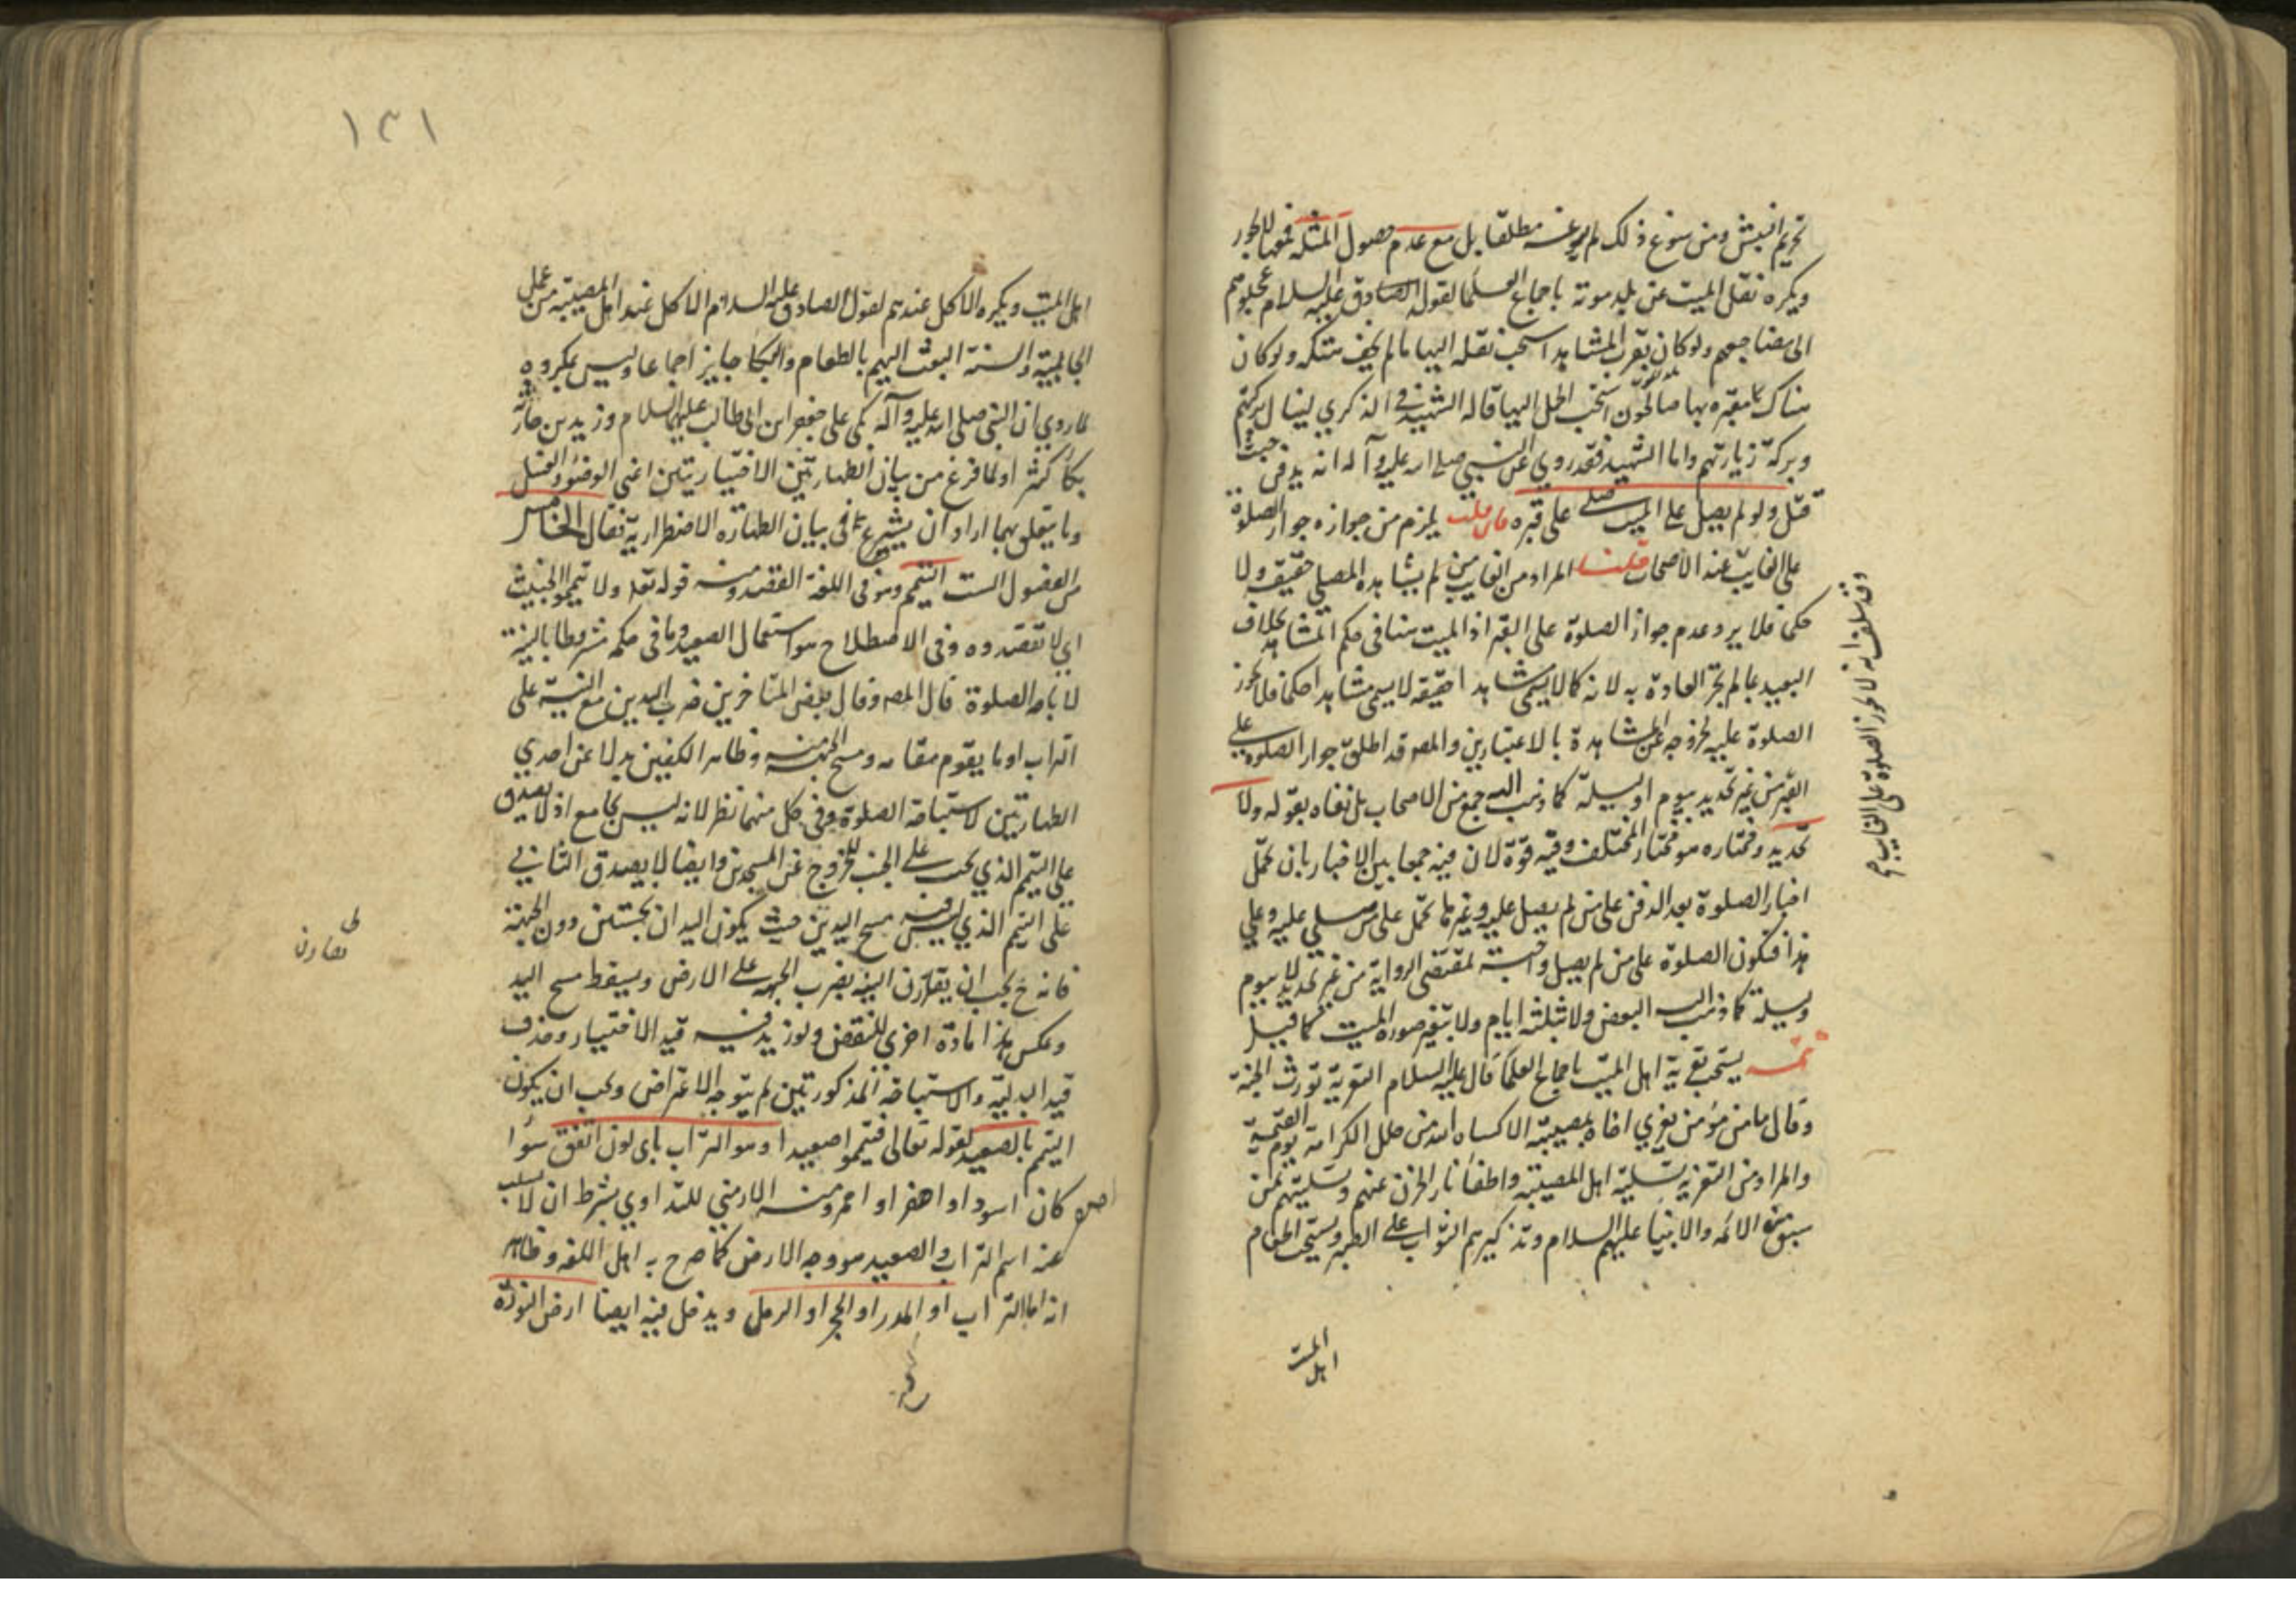 تحريم النبش ومن سوغ ذلك لم يسوغه مطلقا بل مع عدم حصول المثلة فمعها لا يجوز
ويكره نقل الميت عن بلد موته باجماع العلما لقول الصادق عليه السلام عجلوهم
الى مضاجعهم ولو كان بقرب المشاهد استحب نقله اليها ما لم يخف هتكه ولو كان
هناك مقبره بها صالحون استحب الحمل اليها قاله الشهيد في الذكري لينال بركتهم
وبركة زيارتهم واما الشهيد فقد روي عن النبي صلى الله عليه وآله انه يدفن حيث
قتل ولو لم يصل على الميت صلى على قبره فان قلت يلزم من جوازه جواز الصلوة
على الغايب عند الاصحاب قلنا المراد من الغايب من لم يشاهده المصلي حقيقة ولا
حكما فلا يرد عدم جواز الصلوة على القبر اذ الميت هنا في حكم المشاهد بخلاف
البعيد بما لم تجر العادة به لانه كما لا يسمى مشاهدا حقيقة لا يسمى مشاهدا حكما فلا يجوز
الصلوة عليه لخروجه عن المشاهدة بالاعتبارين والمصه قد اطلق جواز الصلوة على
القبر من غير تحديد بيوم او ليلة كما ذهب اليه جمع من الاصحاب بل نفاه بقوله ولا
تحديد ومختاره هو مختار المختلف وفيه قوة لان فيه جمعا بين الاخبار بان تحمل
اخبار الصلوة بعد الدفن على من لم يصل عليه وغيرها تحمل على من صلي عليه وعلى
هذا فتكون الصلوة على من لم يصل واجبة لمقتضى الرواية من غير تحديد لا بيوم
وليلة كما ذهب اليه البعض ولا بثلثة ايام ولا بتغير صورة الميت كما قيل
تتمه يستحب تعزية اهل الميت باجماع العلما قال عليه السلام التعزية تورث الجنة
وقال ما من مؤمن يعزي اخاه بمصيبته الا كساه الله من حلل الكرامة يوم القيمة
والمراد من التعزية تسلية اهل المصيبة واطفا نار الحزن عنهم وتسليتهم بمن
سبق من الائمه والانبيا عليهم السلام وتذكيرهم الثواب على الصبر ويستحب اطعام
اهل الميت
وقد سلف انه لا يجوز الصلوة على الغايب
١٣١
اهل الميت ويكره الاكل عندهم لقول الصادق عليه السلام الاكل عند اهل المصيبة من عمل
الجاهلية والسنة البعث اليهم بالطعام والبكا جايز اجماعا وليس بمكروه
لما روي ان النبي صلى الله عليه وآله بكى على جعفر ابن ابى طالب عليهما السلام وزيد بن حارثة
بكاء كثيرا ولما فرغ من بيان الطهارتين الاختياريتين اعنى الوضؤ والغسل
وما يتعلق بهما اراد ان يشرع في بيان الطهارة الاضطرارية فقال الخامس
من الفصول الست التيمم وهو في اللغة القصد ومنه قوله تعه ولا تيمموا الخبيث
اي لا تقصدوه وفى الاصطلاح هو استعمال الصعيد وما في حكمه مشروطا بالنية
لاباحة الصلوة قال المصه وقال بعض المتاخرين ضرب اليدين مع النية على
التراب او ما يقوم مقامه ومسح الجبهة وظاهر الكفين بدلا عن احدي
الطهارتين لاستباحة الصلوة وفي كل منهما نظر لانه ليس بجامع اذ لا يصدق
على التيمم الذي يجب على الجنب للخروج عن المسجدين وايضا لا يصدق الثاني
على التيمم الذي ليس فيه مسح اليدين حيث يكون اليدان نجستين دون الجبهة
فانه ح يجب ان يقارن النية بضرب الجبهة على الارض ويسقط مسح اليد
وعكس هذا مادة اخري للنقض ولو زيد فيه قيد الاختيار وحذف
قيد البدلية والاستباحة المذكورتين لم يتوجه الاعتراض ويجب ان يكون
التيمم بالصعيد لقوله تعالى فتيمموا صعيدا وهو التراب باى لون اتفق سؤا
كان اسود او اصفر او احمر ومنه الارمني للتداوي بشرط ان لا يسلب
عنه اسم التراب والصعيد هو وجه الارض كما صرح به اهل اللغه وظاهر
انه اما التراب او المدر او الحجر او الرمل ويدخل فيه ايضا ارض النورة